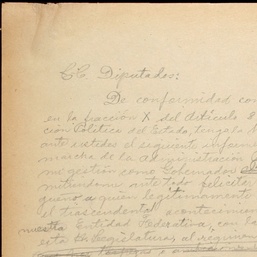 CC. Diputados:
De conformidad con
en la fracción X del Artículo
ción Política del Estado, tengo la
ante ustedes el siguiente informe
marcha de la administración
mi gestión como Gobernador
mitiendome ante todo felicitar
a quien legítimamente
el trascendental acontecimien
nuestra Entidad Federativa, con la
esta H. Legislatura, al